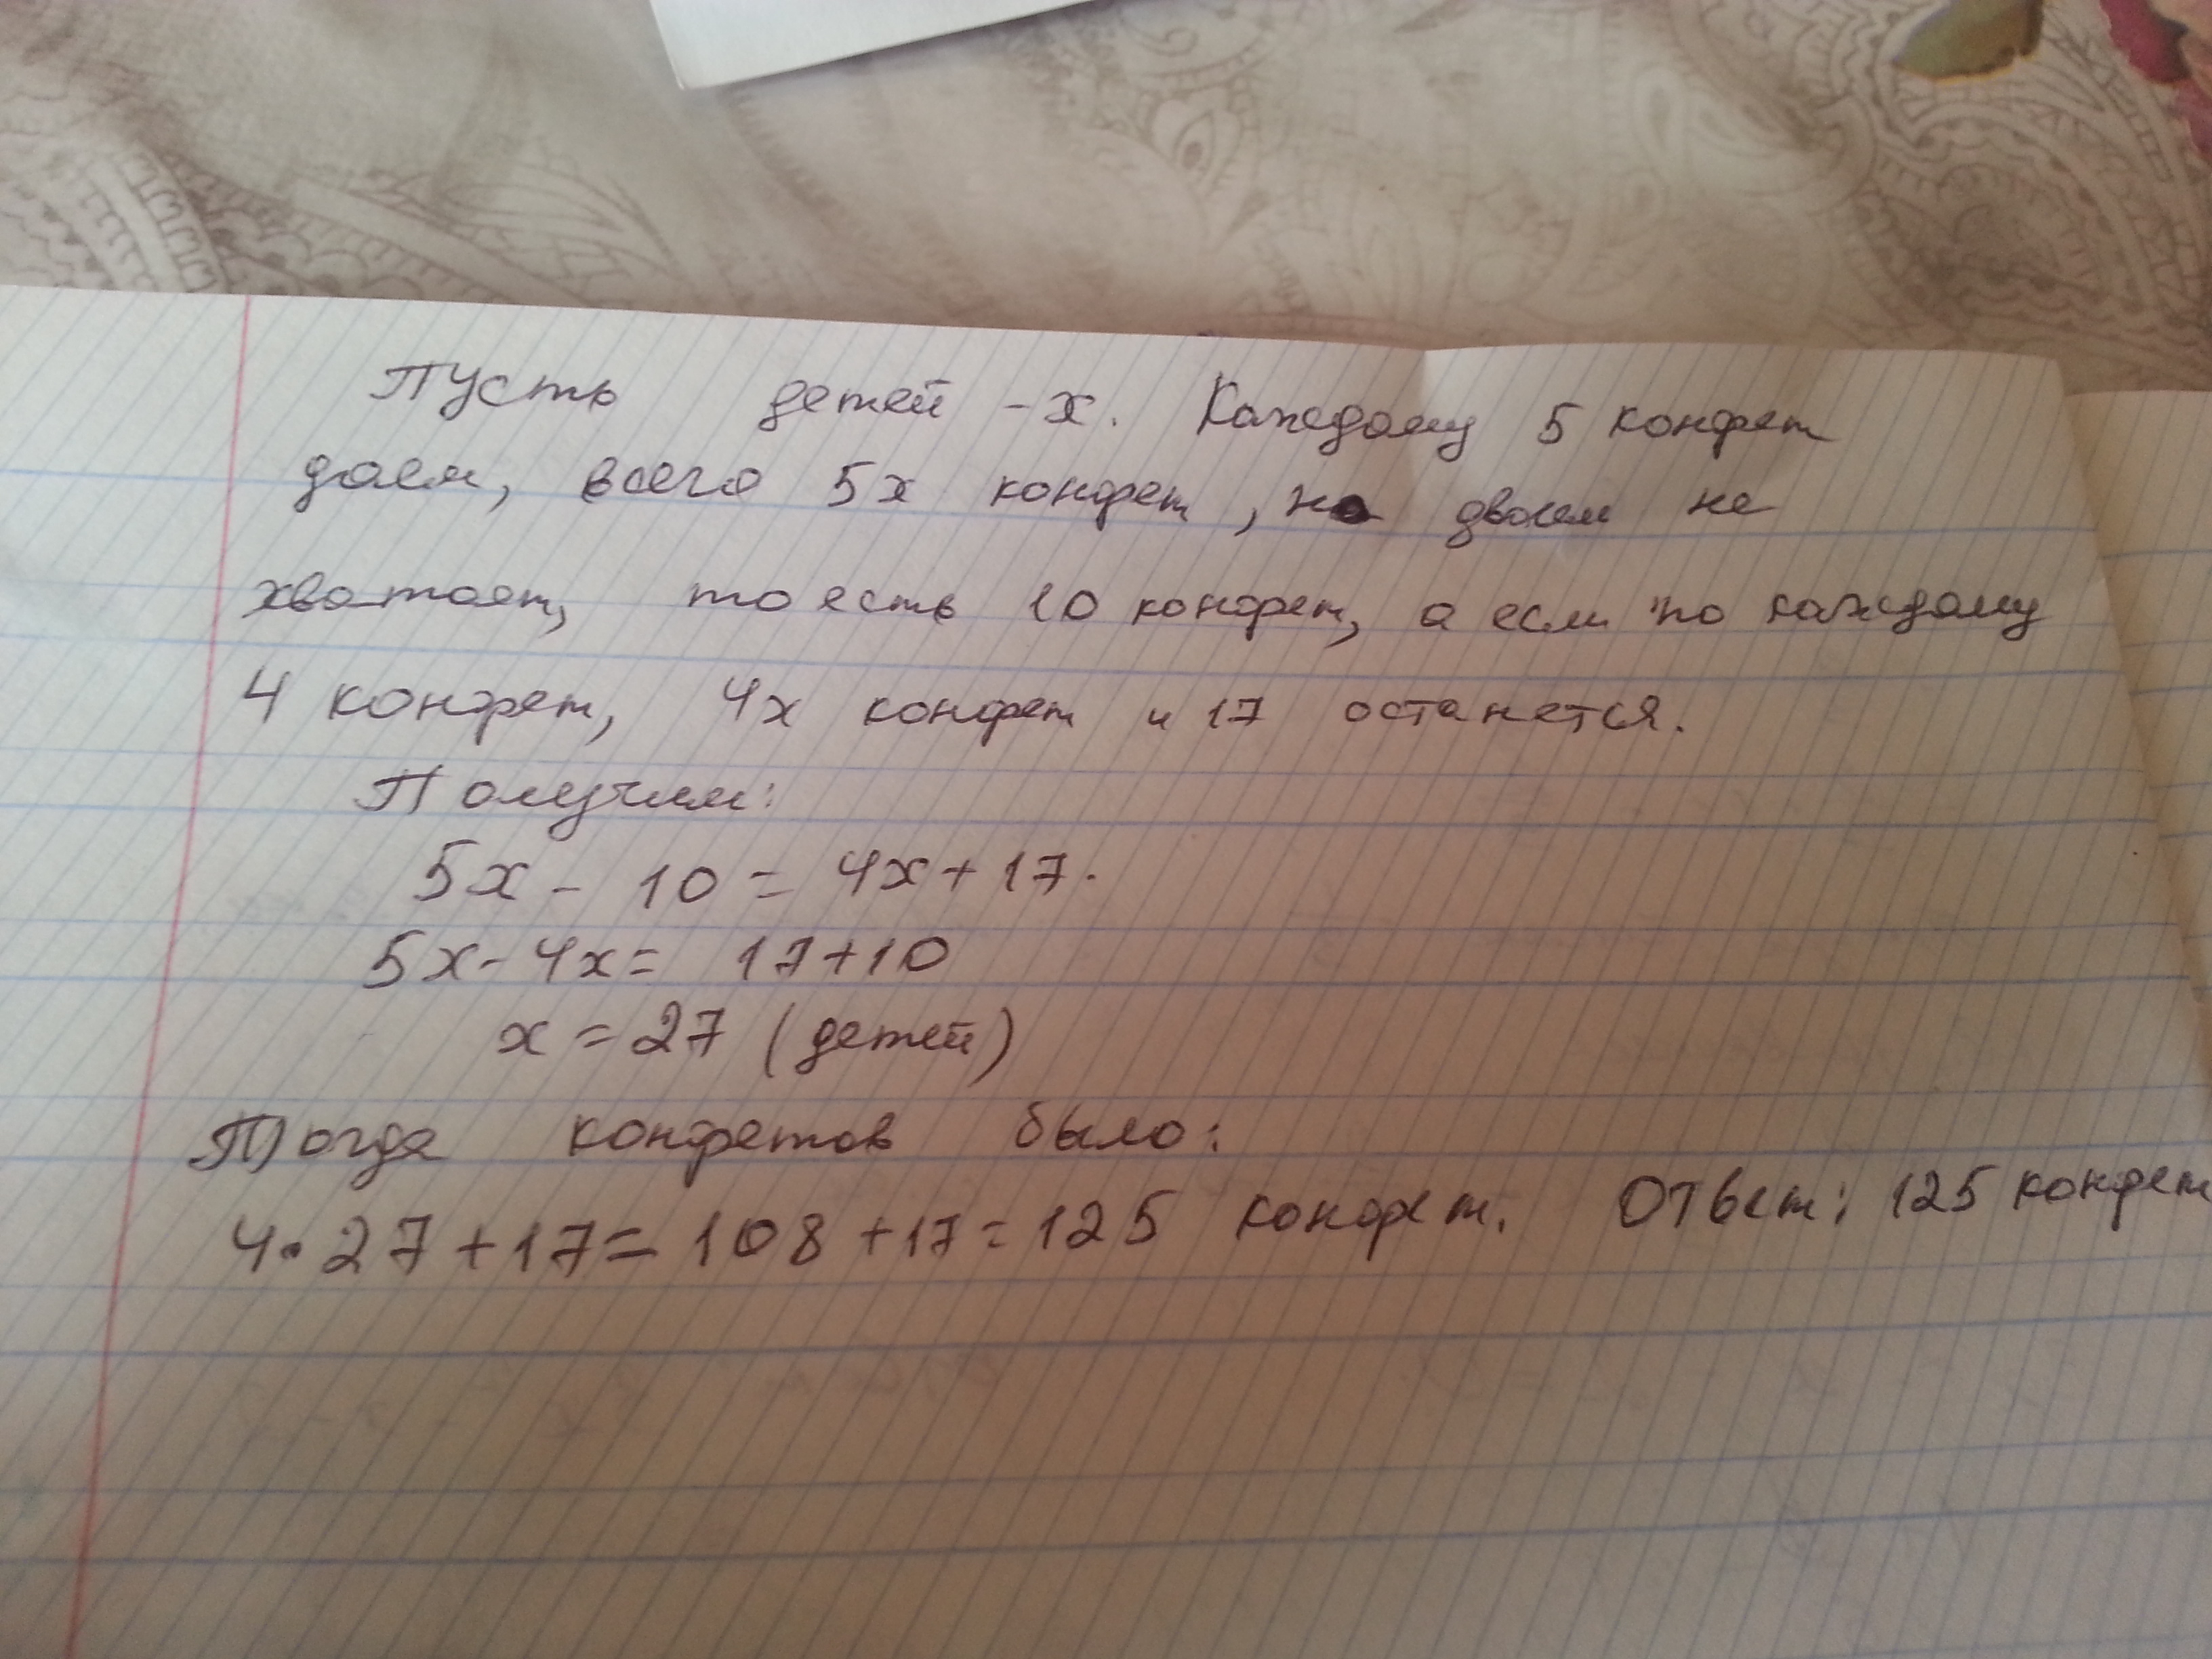 Пусть детей - х. Каждому 5 конфет
даем, всего 5х конфет, но двоем не
хватает, то есть 10 конфет, а если по каждому
4 конфет, 4х конфет и 17 останется.
Получим:
5х - 10 = 4х + 17.
5х - 4х = 17 + 10
х = 27 (детей)
Тогда конфетов было:
4 · 27 + 17 = 108 + 17 = 125 конфет. Ответ: 125 конфет